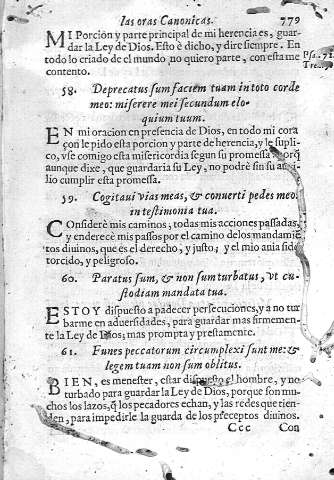 las oras Canonicas. 779
MI Porcion y parte principal de mi herencia es, guar
dar la Ley de Dios. Esto è dicho, y dire siempre. En
todo lo criado de el mundo no quiero parte, con esta me
contento.
58. Deprecatus sum faciem tuam in toto corde
meo: miserere mei secundum elo-
quium tuum.
EN mi oracion en presencia de Dios, en todo mi cora
çon le pido esta porcion y parte de herencia, y le supli-
co, vse comigo esta misericordia segun su promessa
aunque dixe, que guardaria su Ley, no podrè sin su au
lio cumplir esta promessa.
59. Cogitaui vias meas, & conuerti pedes meo
in testimonia tua.
COnsiderè mis caminos, todas mis acciones passadas,
y enderecè mis passos por el camino de los mandamiẽ
tos diuinos, que es el derecho, y justo; y el mio auia sido
torcido, y peligroso.
60. Paratus sum, & non sum turbatus, vt cu-
stodiam mandata tua.
ESTOY dispuesto a padecer persecuciones, y a no tur
barme en aduersidades, para guardar mas firmemen-
te la Ley de Dios; mas prompta y prestamente.
61. Funes peccatorum circumplexi sunt me: &
legem tuam non sum oblitus.
BIEN, es menester, estar dispuesto el hombre, y no
turbado para guardar la Ley de Dios, porque son mu-
chos los lazos, q̃ los pecadores echan, y las redes que tien-
den, para impedirle la guarda de los preceptos diuinos.
Ccc Con
Psa. 72